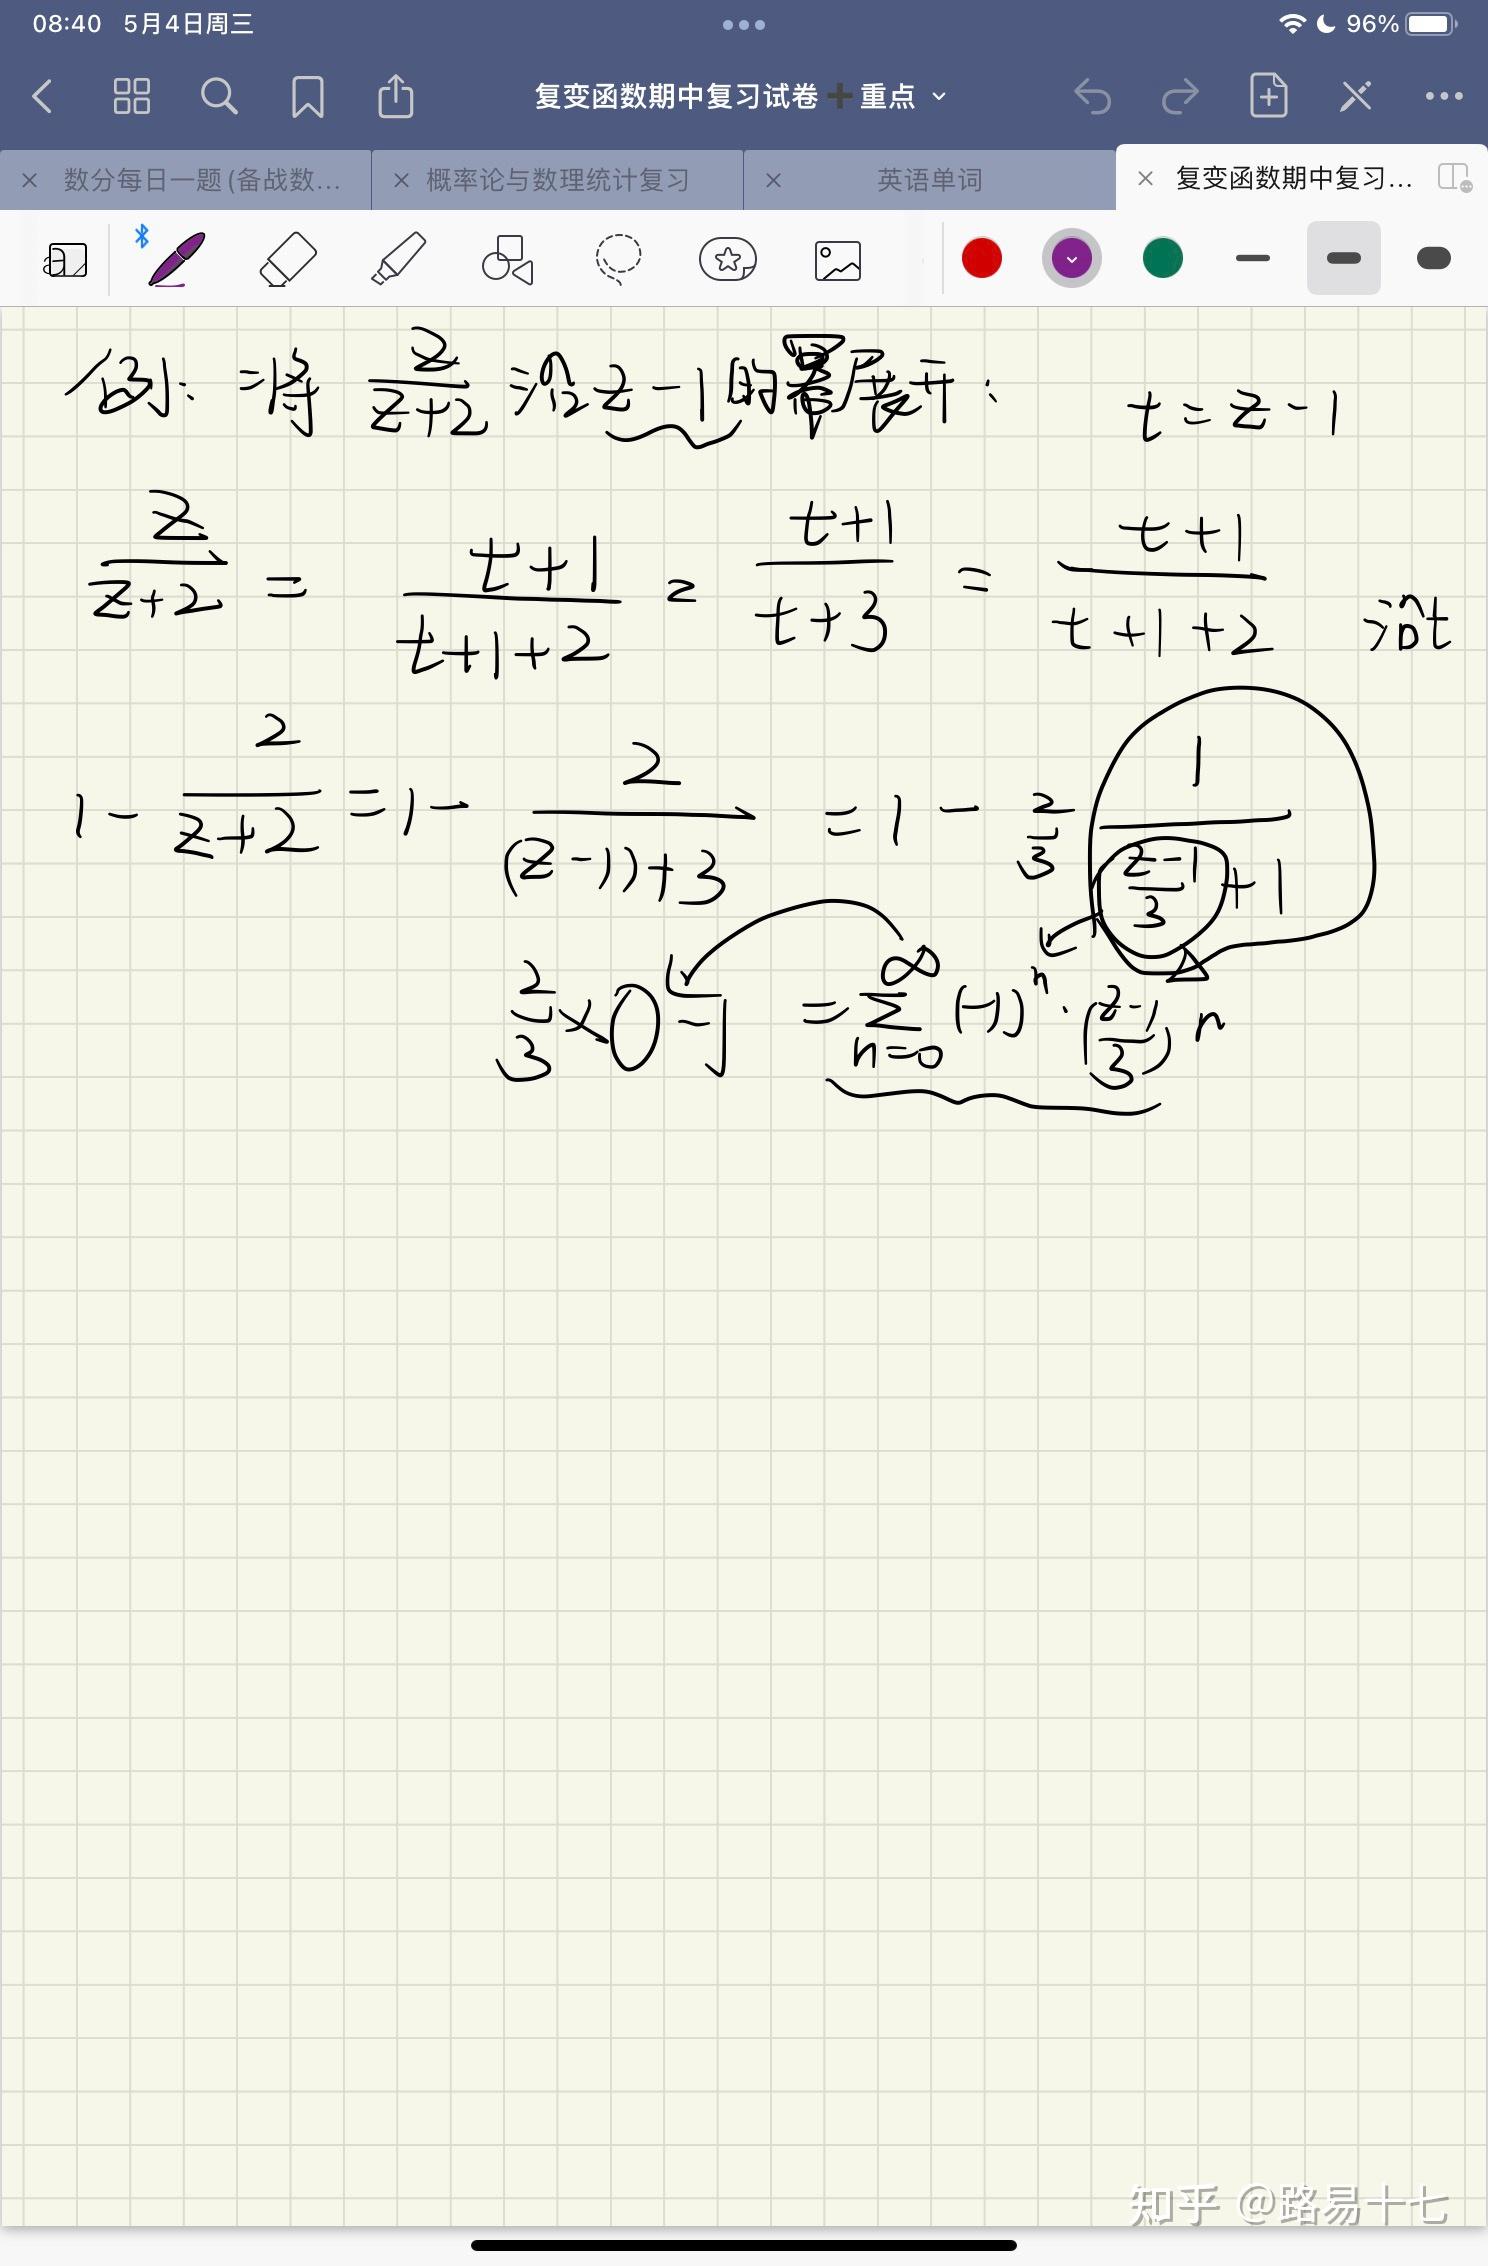 08:40 5月4日周三 96%
复变函数期中复习试卷➕重点
数分每日一题(备战数... 概率论与数理统计复习 英语单词 复变函数期中复习...
例: 将 z/(z+2) 沿 z-1 的幂展开: t=z-1
z/(z+2) = (t+1)/(t+1+2) = (t+1)/(t+3) = (t+1)/(t+1+2) 沿t
1 - 2/(z+2) = 1 - 2/((z-1)+3) = 1 - 2/3 1/((z-1)/3+1)
2/3 × = ∑ n=0 ∞ (-1)^n · ((z-1)/3)^n
知乎 @路易十七